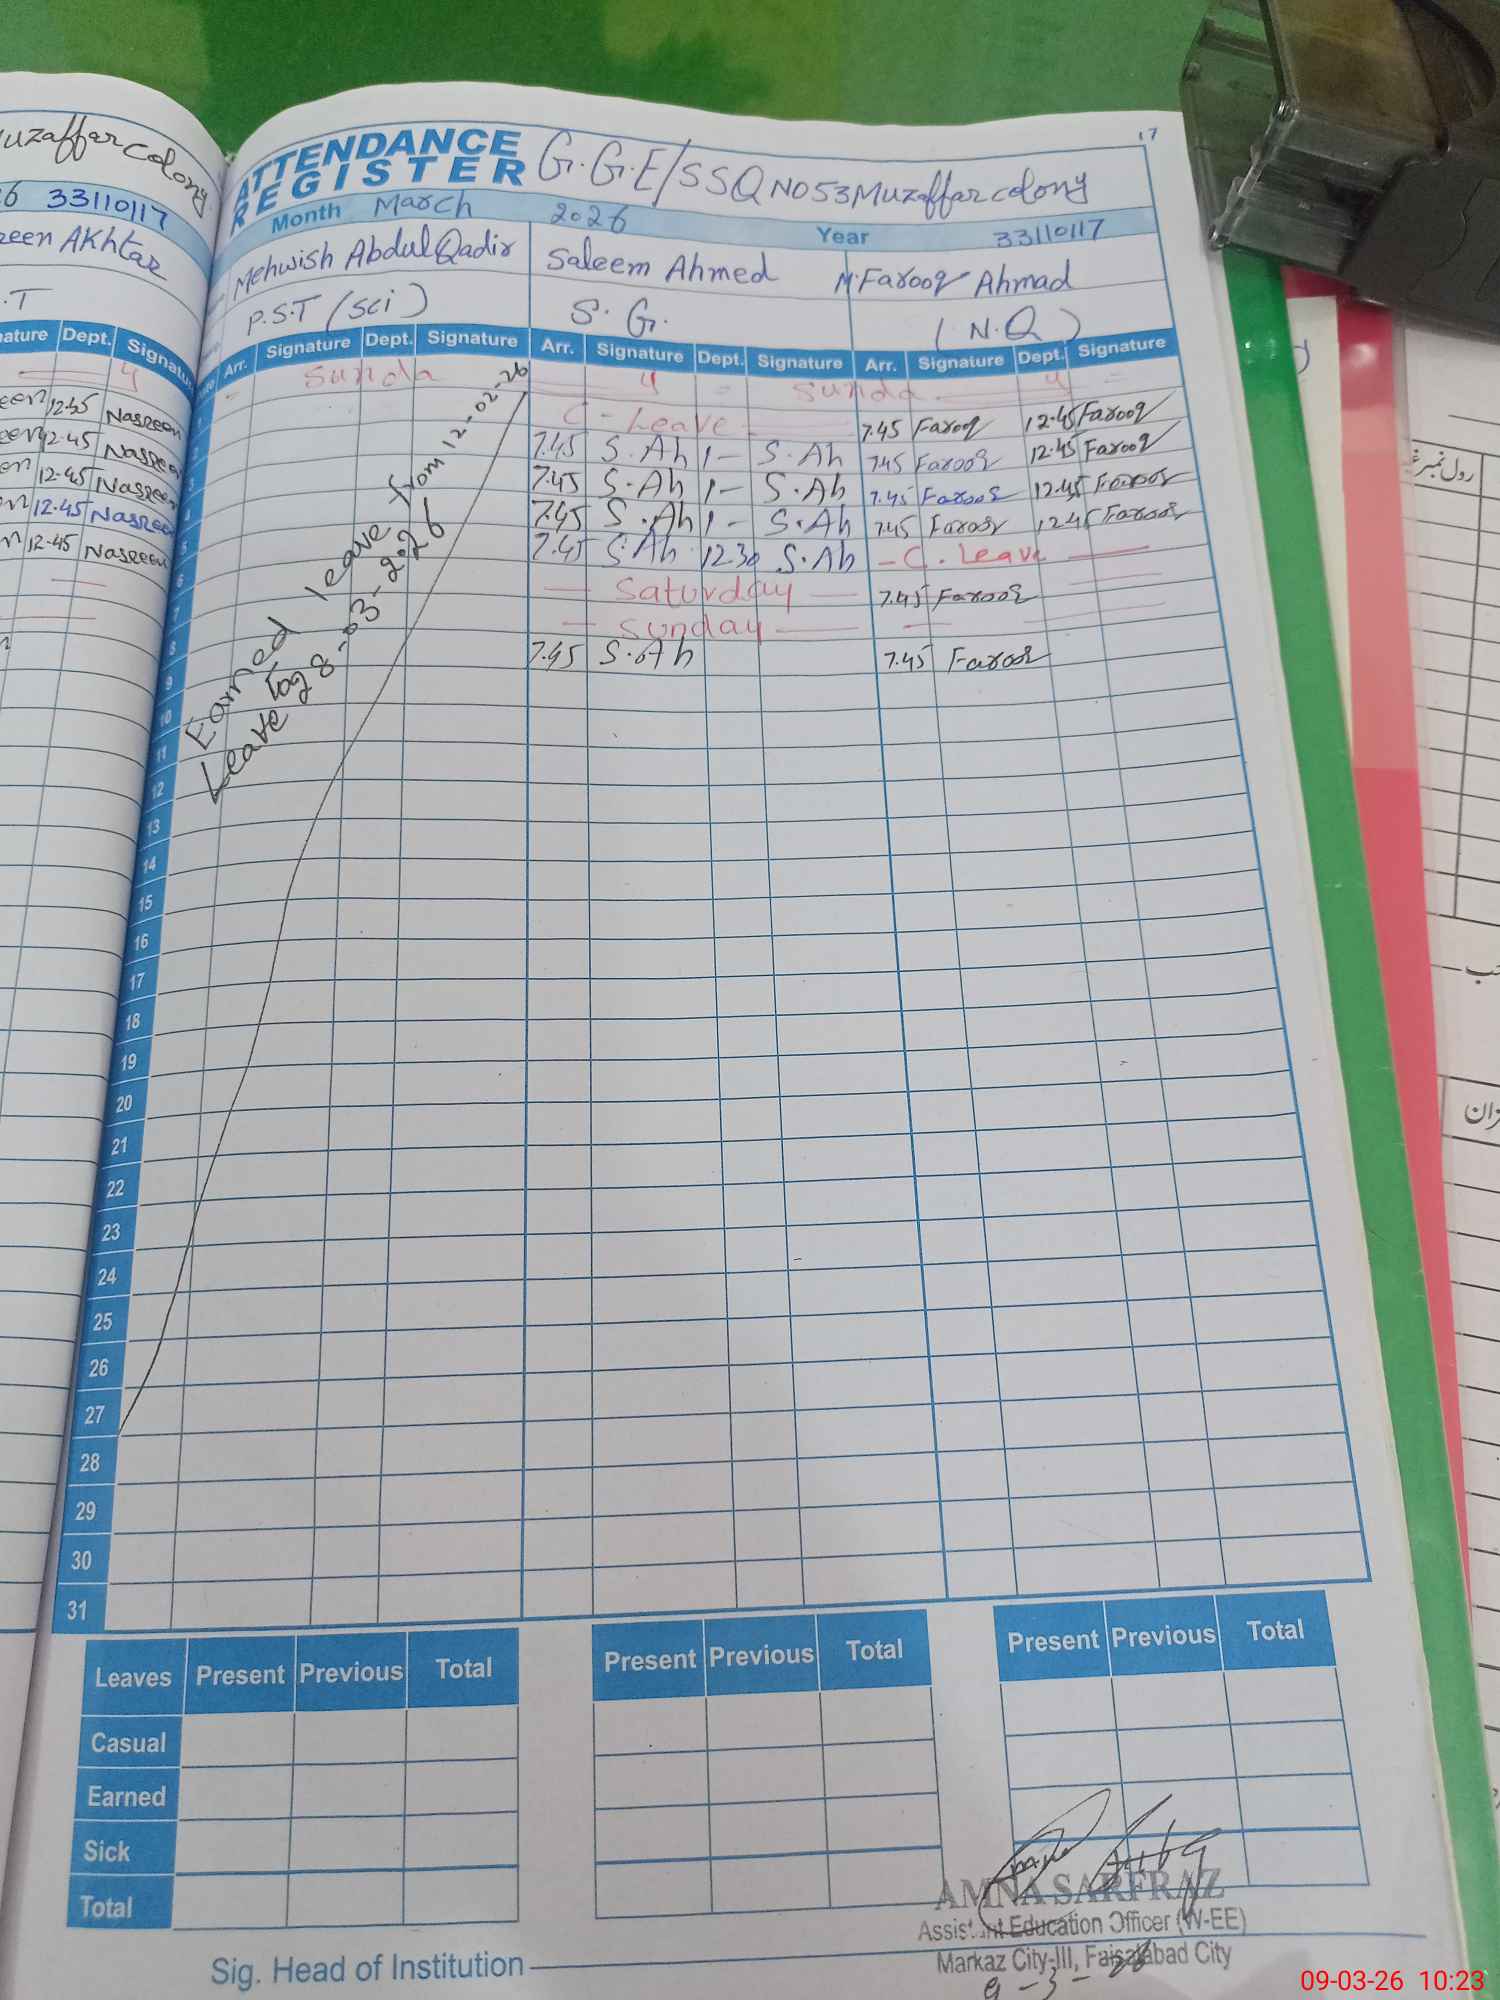 Muzaffar colony
6 33110117
zeen Akhtar
.T
nature Dept. Signatu
4
een 12.45 Nasreen
een 12.45 Nasreen
en 12.45 Nasreen
n 12.45 Nasreen
n 12.45 Nasreen
17
ATTENDANCE
REGISTER G.G.E/S SQ NO 53 Muzaffar colony
Month March 2026 Year 33110117
Mehwish Abdul Qadir Saleem Ahmed M.Farooq Ahmad
P.S.T (Sci) S. G. (N.Q)
Arr. Signature Dept. Signature Arr. Signature Dept. Signature Arr. Signature Dept. Signature
Sunda 4 Sunda 4
1 C - Leave 7.45 Farooq 12.45 Farooq
2 7.45 S.Ah 1- S.Ah 7.45 Farooq 12.45 Farooq
3 7.45 S.Ah 1- S.Ah 7.45 Farooq 12.45 Farooq
4 7.45 S.Ah 1- S.Ah 7.45 Farooq 12.45 Farooq
5 7.45 S.Ah 12.30 S.Ah - C. Leave
6 Saturday 7.45 Farooq
7 Sunday
8 7.45 S.Ah 7.45 Farooq
Earned leave from 12-02-26
Leave To 08-03-2026
9
10
11
12
13
14
15
16
17
18
19
20
21
22
23
24
25
26
27
28
29
30
31
Leaves Present Previous Total Present Previous Total Present Previous Total
Casual
Earned
Sick
Total
AMNA SARFRAZ
Assistant Education Officer (W-EE)
Markaz City-III, Faisalabad City
9-3-26
Sig. Head of Institution
رول نمبر
زان
09-03-26 10:23